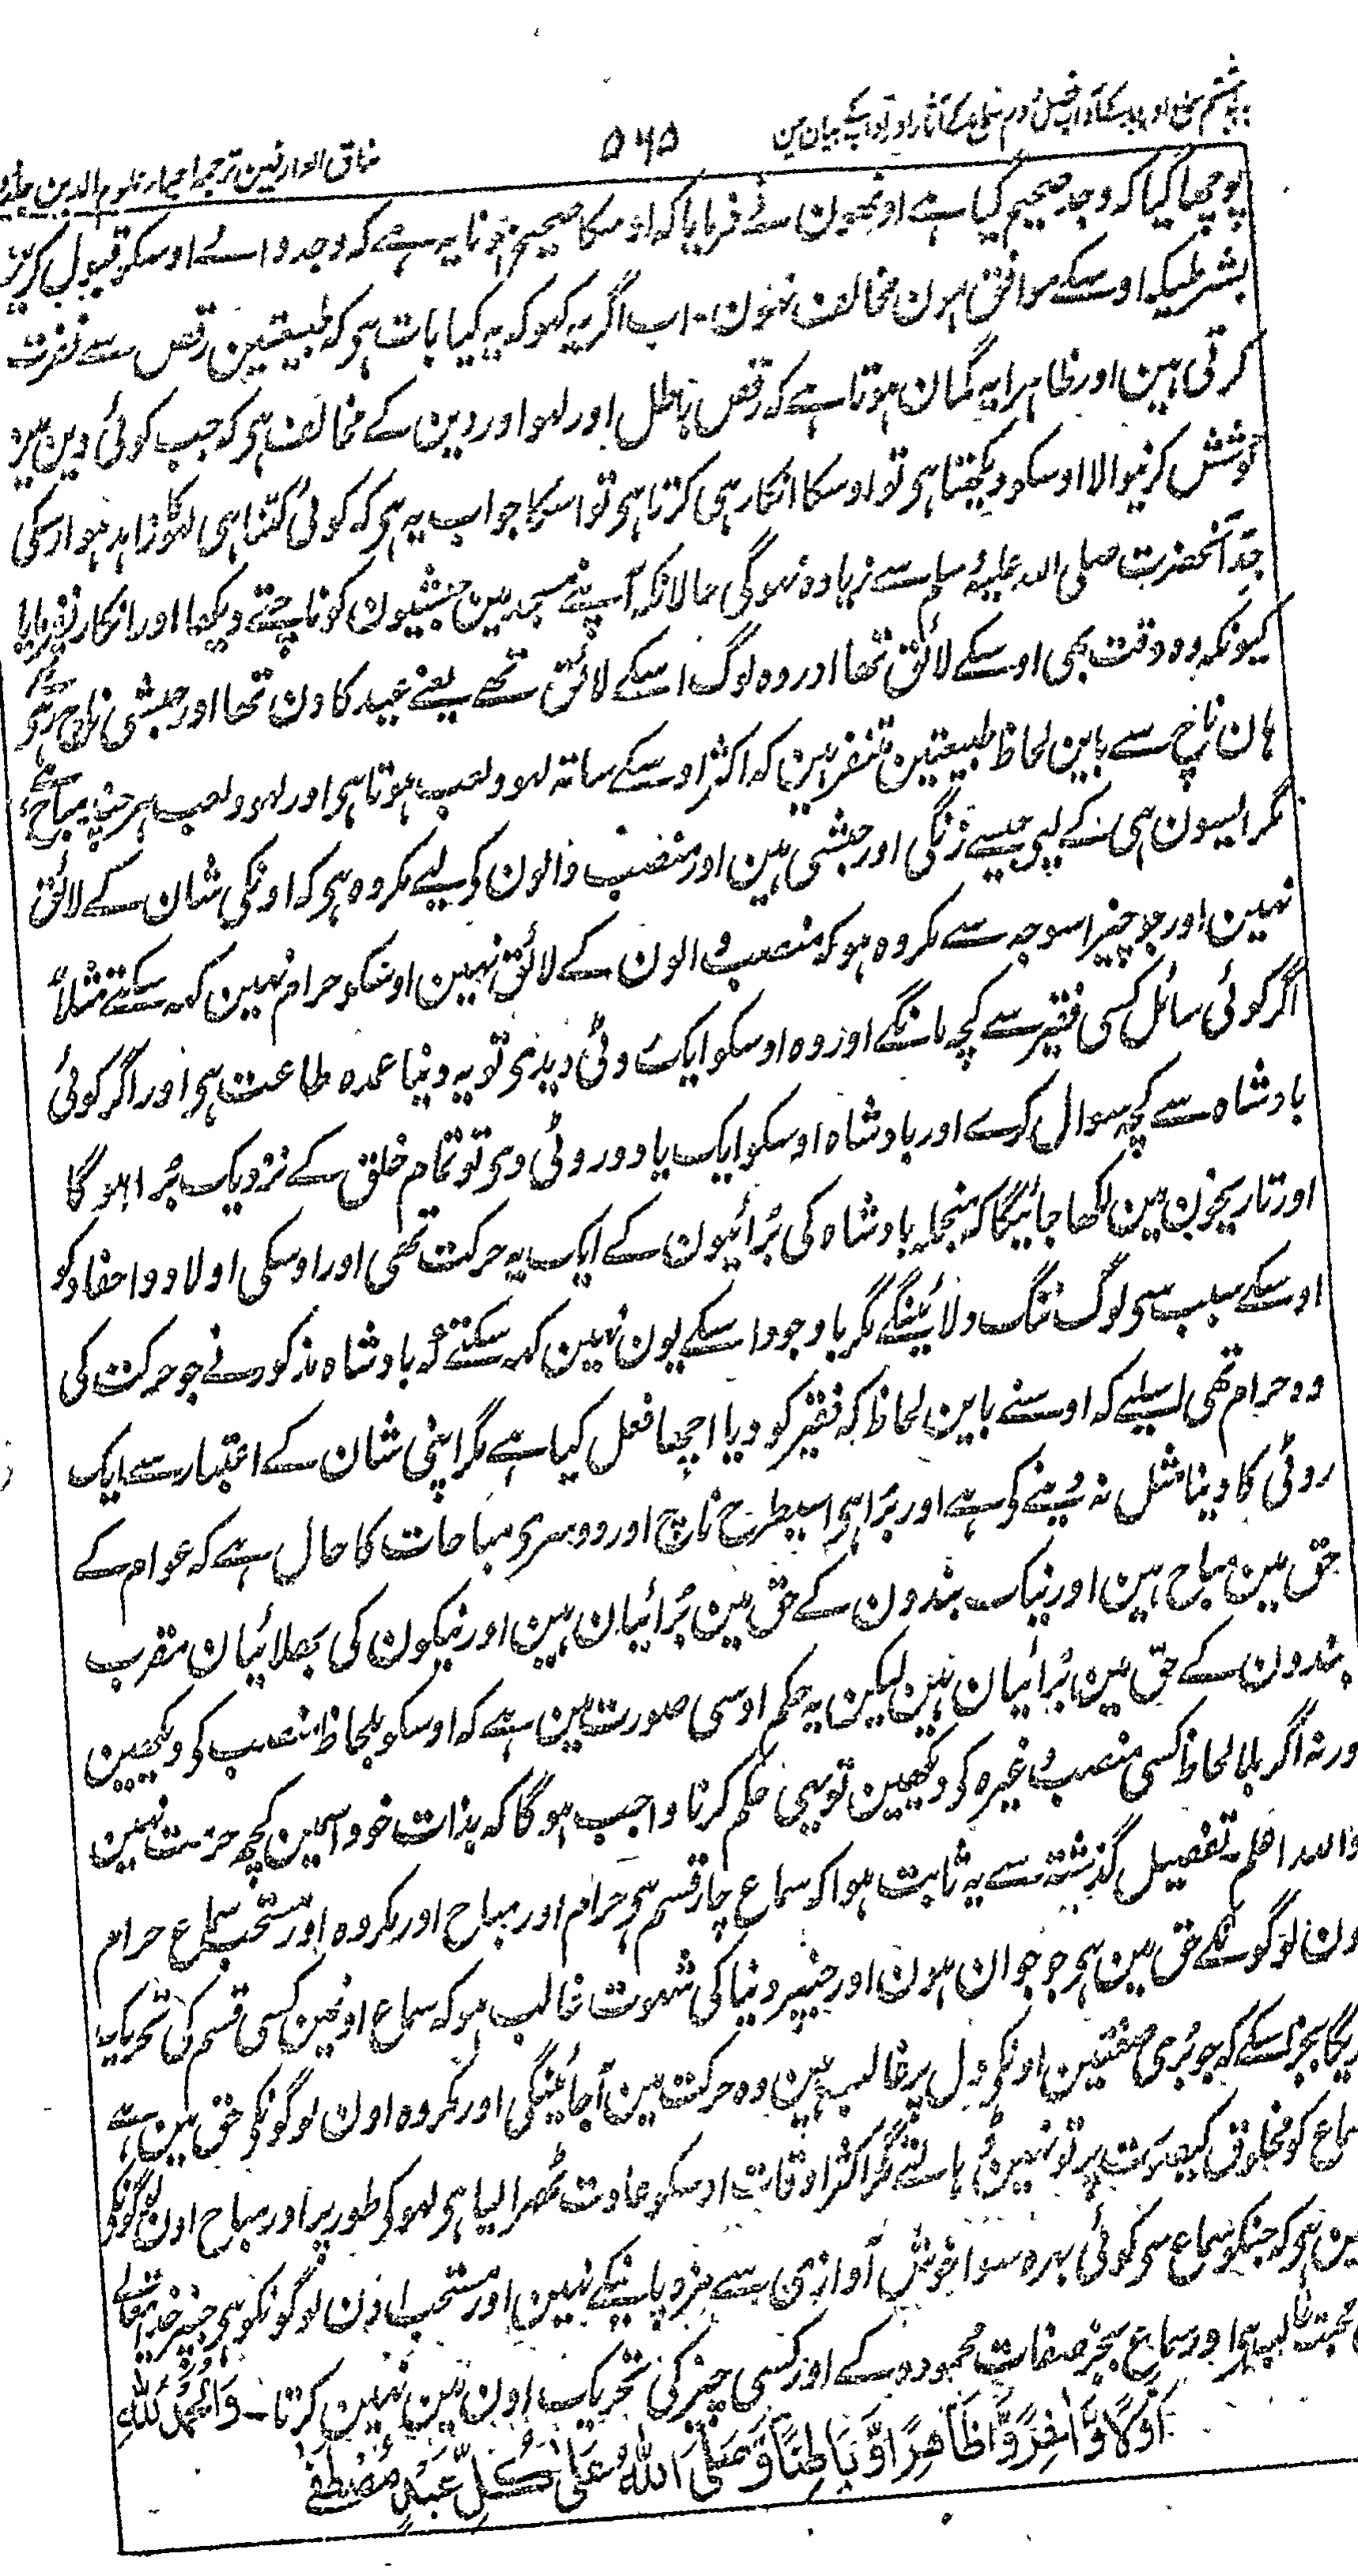 مذاق العارفین ترجمہ احیاء علوم الدین جلد
۵۶۵
پوچھا گیا کہ وجد صحیح کیا ہے اونھون نے فرمایا کہ اوسکا صحیح ہونا یہ ہے کہ وجد والے اوسکو قبول کرین
بشرطیکہ اوسکے موافق ہون مخالف نہون۔ اب اگر یہ کہو کہ یہ کیا بات ہی کہ طبیعتین رقص سے نفرت
کرتی ہین اور ظاہرا یہ گمان ہوتا ہے کہ رقص باطل اور لہو اور دین کے مخالف ہی کہ جب کوئی دین مین
کوشش کرنیوالا اوسکو دیکھتا ہی تو اوسکا انکار ہی کرتا ہی تو اسکا جواب یہ ہی کہ کوئی کتنا ہی بڑا زاہد ہو اوسکی
جد آنحضرت صلی اللہ علیہ وسلم سے زیادہ نہوگی حالانکہ آپنے مسجد مین حبشیون کو ناچتے دیکھا اور انکار نفرمایا
کیونکہ وہ وقت بھی اوسکے لائق تھا اور وہ لوگ اسکے لائق تھے یعنے عید کا دن تھا اور حبشی ناچ رہی تھے
ہان ناچ سے باین لحاظ طبیعتین متنفر ہین کہ اکثر اوسکے ساتہ لہو ولعب ہوتا ہی اور لہو ولعب ہر چند مباح ہے
مگر ایسون ہی کے لیے جیسے زنگی اور حبشی ہین اور منصب والون کو لیے مکروہ ہی کہ اونکی شان کے لائق
نہین اور جو چیز اسوجہ سے مکروہ ہو کہ منصب والون کے لائق نہین اوسکو حرام نہین کہہ سکتے مثلاً
اگر کوئی سائل کسی فقیر سے کچہ مانگے اور وہ اوسکو ایک روٹی دیدی تو یہ دینا عمدہ طاعت ہی اور اگر کوئی
بادشاہ سے کچہ سوال کرے اور بادشاہ اوسکو ایک یا دو روٹی دی تو تمام خلق کے نزدیک بُرا ہوگا
اور تاریخون مین لکھا جائیگا کہ منجملہ بادشاہ کی بُرائیون کے ایک یہ حرکت تھی اور اوسکی اولاد و احفاد کو
اوسکے سبب سی لوگ ننگ دلائینگے مگر باوجود اسکے یون نہین کہہ سکتے کہ بادشاہ مذکور نے جو حرکت کی
وہ حرام تھی اسلیے کہ اوسنے باین لحاظ کہ فقیر کو دیا اچھا فعل کیا ہے مگر اپنی شان کے اعتبار سے ایک
روٹی کا دینا مثل نہ دینے کو ہے اور بُرا ہی اسیطرح ناچ اور دوسری مباحات کا حال ہے کہ عوام کے
حق مین مباح ہین اور نیک بندون کے حق مین بُرائیان ہین اور نیکون کی بھلائیان مقرب
بندون کے حق مین بُرائیان ہین لیکن یہ حکم اوسی صورت مین ہے کہ اوسکو بلحاظ منصب کو دیکھین
ورنہ اگر بلا لحاظ کسی منصب وغیرہ کو دیکھین تو یہی حکم کرنا واجب ہوگا کہ بذات خود اسمین کچھ حرمت نہین
واللہ اعلم۔ تفصیل گذشتہ سے یہ ثابت ہوا کہ سماع چار قسم ہی حرام اور مباح اور مکروہ اور مستحب سماع حرام
ون لوگونکے حق مین ہی جو جوان ہون اور جنپر دنیا کی شہوت غالب ہو کہ سماع اونمین کسی قسم کی تحریک
ریگا بجز اسکے کہ جو بُری صفتین اونکو دل پر غالب ہین وہ حرکت مین آجائینگی اور مکروہ اون لوگونکو حق مین ہے
ماع کو مخلوق کیصورت پر تو نہین ڈہالتے مگر اکثر اوقات اوسکو عادت ٹھرا لیا ہی لہو کی طور پر اور مباح اون لوگونکو
ین ہی کہ جنکو سماع سی کوئی بہرہ سوا خوش آوازی سے مزہ پانیکے نہین اور مستحب اون لوگونکو ہی جنپر خدا تعالے
محبت غالب ہی اور سماع بجز صفات محمودہ کے اور کسی چیز کی تحریک اون مین نہین کرتا۔ وَالْحَمْدُ لِلّٰہِ
اَوَّلًا وَّاٰخِرًا وَّظَاهِرًا وَّبَاطِنًا وَصَلَّی اللّٰهُ عَلٰی كُلِّ عَبْدٍ مُصْطَفٰی